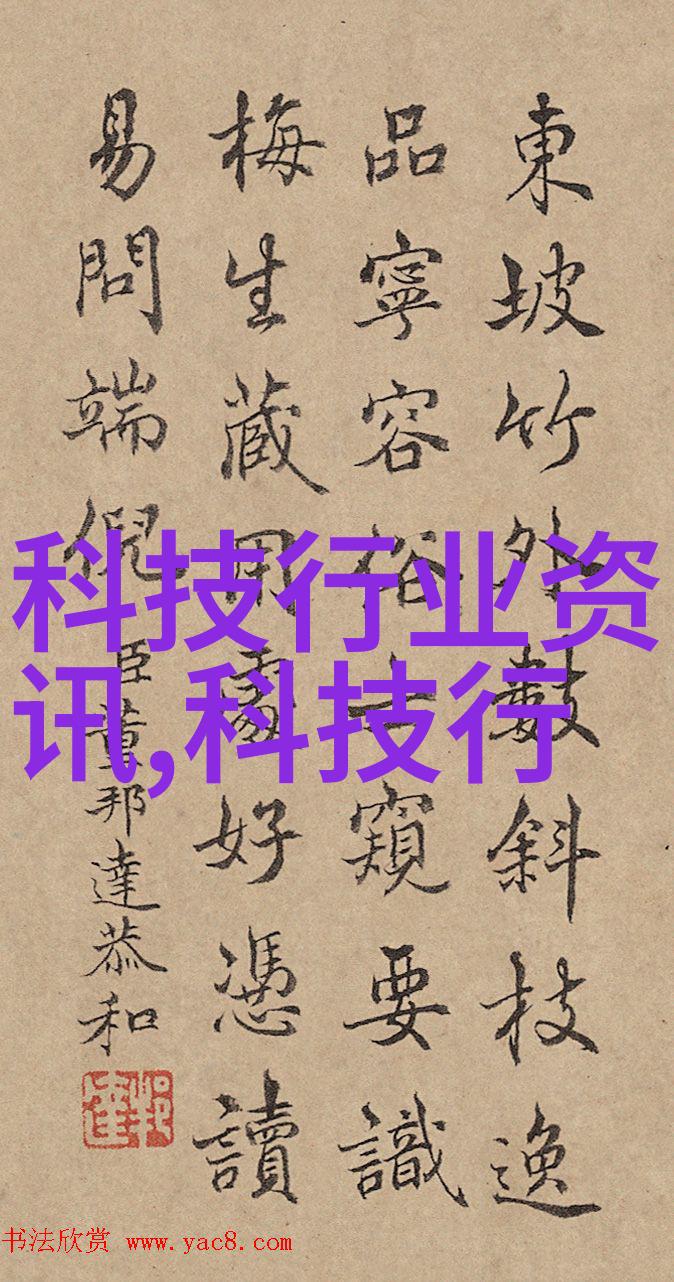 東坡竹外數斜枝逸
品寧容俗士窺要識
梅生藏用處好憑讀
易問端倪臣董邦達恭和
科技行业资
讯,科技行
书法欣赏 www.yac8.com